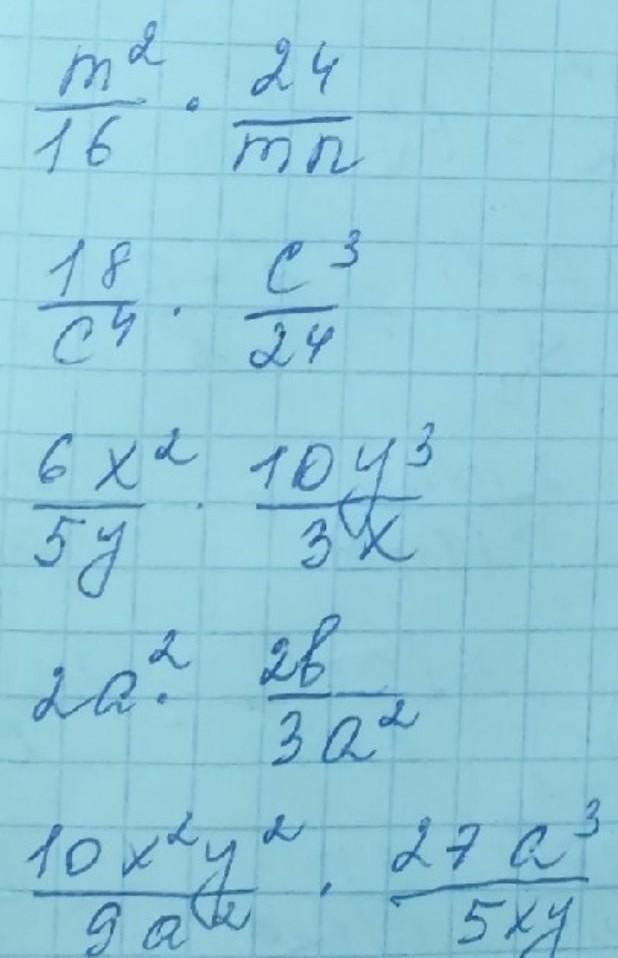 m²/16 · 24/mn
18/c⁴ · c³/24
6x²/5y · 10y³/3x
2a² · 2b/3a²
10x²y²/9a² · 27a³/5xy